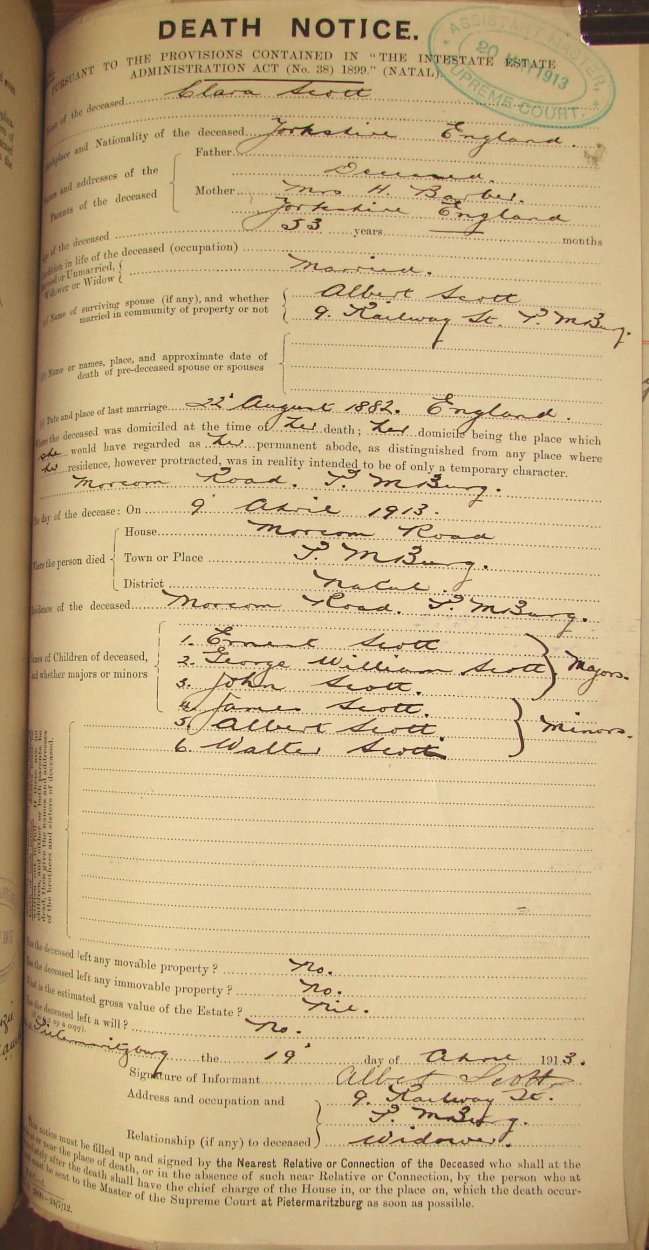 DEATH NOTICE.
PURSUANT TO THE PROVISIONS CONTAINED IN "THE INTESTATE ESTATE
ADMINISTRATION ACT (No. 38) 1899." (NATAL)
ASSISTANT MASTER,
20 1913
SUPREME COURT.
Name of the deceased Clara Scott
Birthplace and Nationality of the deceased Yorkshire England.
Names and addresses of the Parents of the deceased
Father Deceased.
Mother Mrs H. Barber.
Yorkshire England
Age of the deceased 53 years — months
Condition in life of the deceased (occupation)
Married or Unmarried, Widower or Widow Married.
(a) Name of surviving spouse (if any), and whether Albert Scott
married in community of property or not 9. Railway St. P. MBurg.
(b) Name or names, place, and approximate date of
death of pre-deceased spouse or spouses
(c) Date and place of last marriage 22' August 1882. England.
Where the deceased was domiciled at the time of her death; her domicile being the place which
she would have regarded as her permanent abode, as distinguished from any place where
her residence, however protracted, was in reality intended to be of only a temporary character.
Morcom Road. P. MBurg.
The day of the decease: On 9' April 1913.
Where the person died
House Morcom Road
Town or Place P. MBurg.
District Natal.
Residence of the deceased Morcom Road. P. MBurg.
Names of Children of deceased,
and whether majors or minors
1. Ernest Scott
2. George William Scott
3. John Scott.
Majors.
4. James Scott.
5. Albert Scott.
6. Walter Scott
Minors.
children, and either or both parents be
dead, then give the names and addresses
of the brothers and sisters of deceased.
Has the deceased left any movable property? No.
Has the deceased left any immovable property? No.
What is the estimated gross value of the Estate? Nil.
Has the deceased left a will? No.
up a copy).
Pietermaritzburg the 19' day of April 1913.
Signature of Informant Albert Scott
Address and occupation and 9. Railway St.
P. MBurg.
Relationship (if any) to deceased Widower.
This notice must be filled up and signed by the Nearest Relative or Connection of the Deceased who shall at the
or near the place of death, or in the absence of such near Relative or Connection, by the person who at
immediately after the death shall have the chief charge of the House in, or the place on, which the death occur-
must be sent to the Master of the Supreme Court at Pietermaritzburg as soon as possible.
24/7/12.